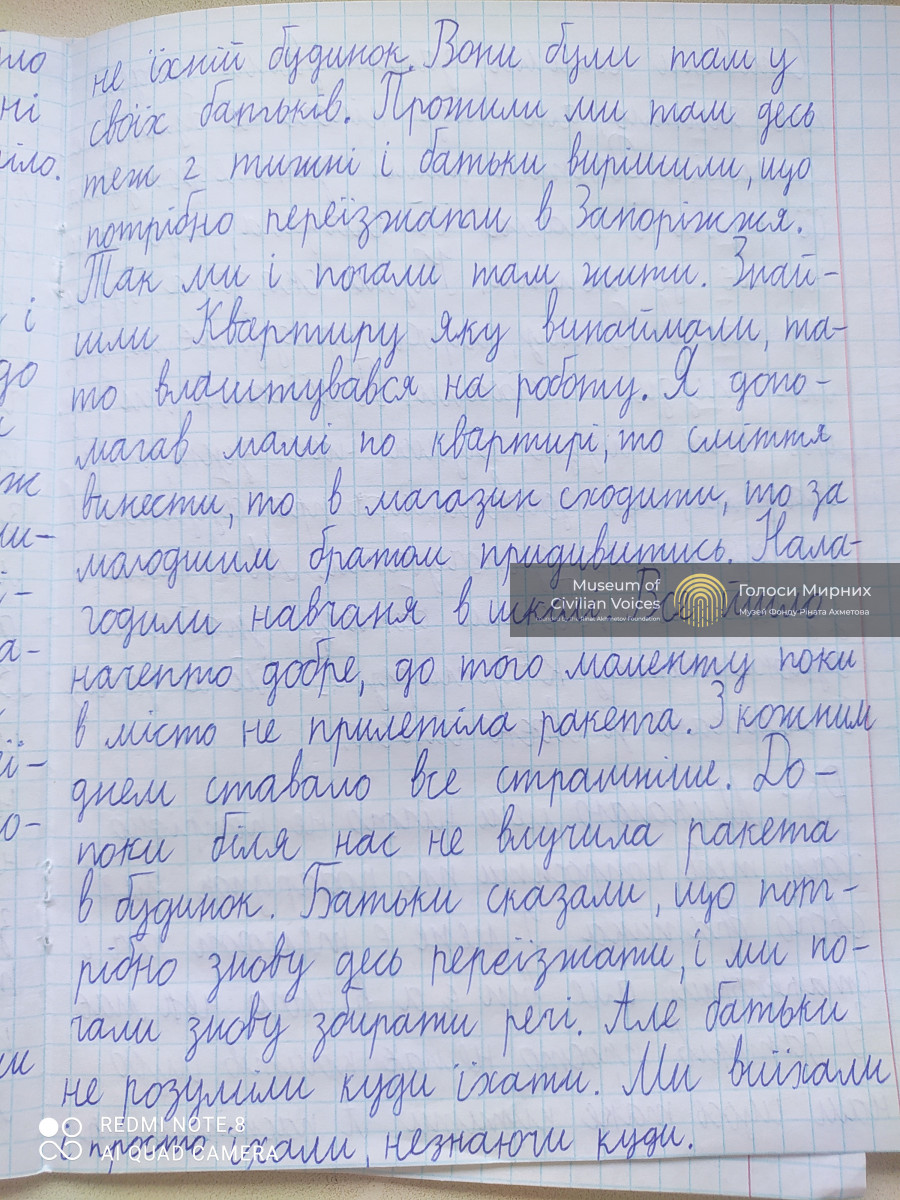 не їхній будинок. Вони були там у
своїх батьків. Прожили ми там десь
теж 2 тижні і батьки вирішили, що
потрібно переїзжати в Запоріжжя.
Так ми і почали там жити. Знай-
шли Квартиру яку винаймали, та-
то влаштувався на роботу. Я допо-
магав мамі по квартирі, то сміття
винести, то в магазин сходити, то за
молодшим братом придивитись. Нала-
Museum of
Civilian Voices
Голоси Мирних
Музей Фонду Ріната Ахметова
годили навчаня в школі. Все йшло
начепто добре, до того моменту поки
в місто не прилетіла ракета. З кожним
днем ставало все страшніше. До-
поки біля нас не влучила ракета
в будинок. Батьки сказали, що пот-
рібно знову десь переїзжати, і ми по-
чали знову збирати речі. Але батьки
не розуміли куди їхати. Ми виїхали
і просто їхали, незнаючи куди.
REDMI NOTE 8
AI QUAD CAMERA
ло
ні
іло.
і
до
ж
ши-
а-
о-